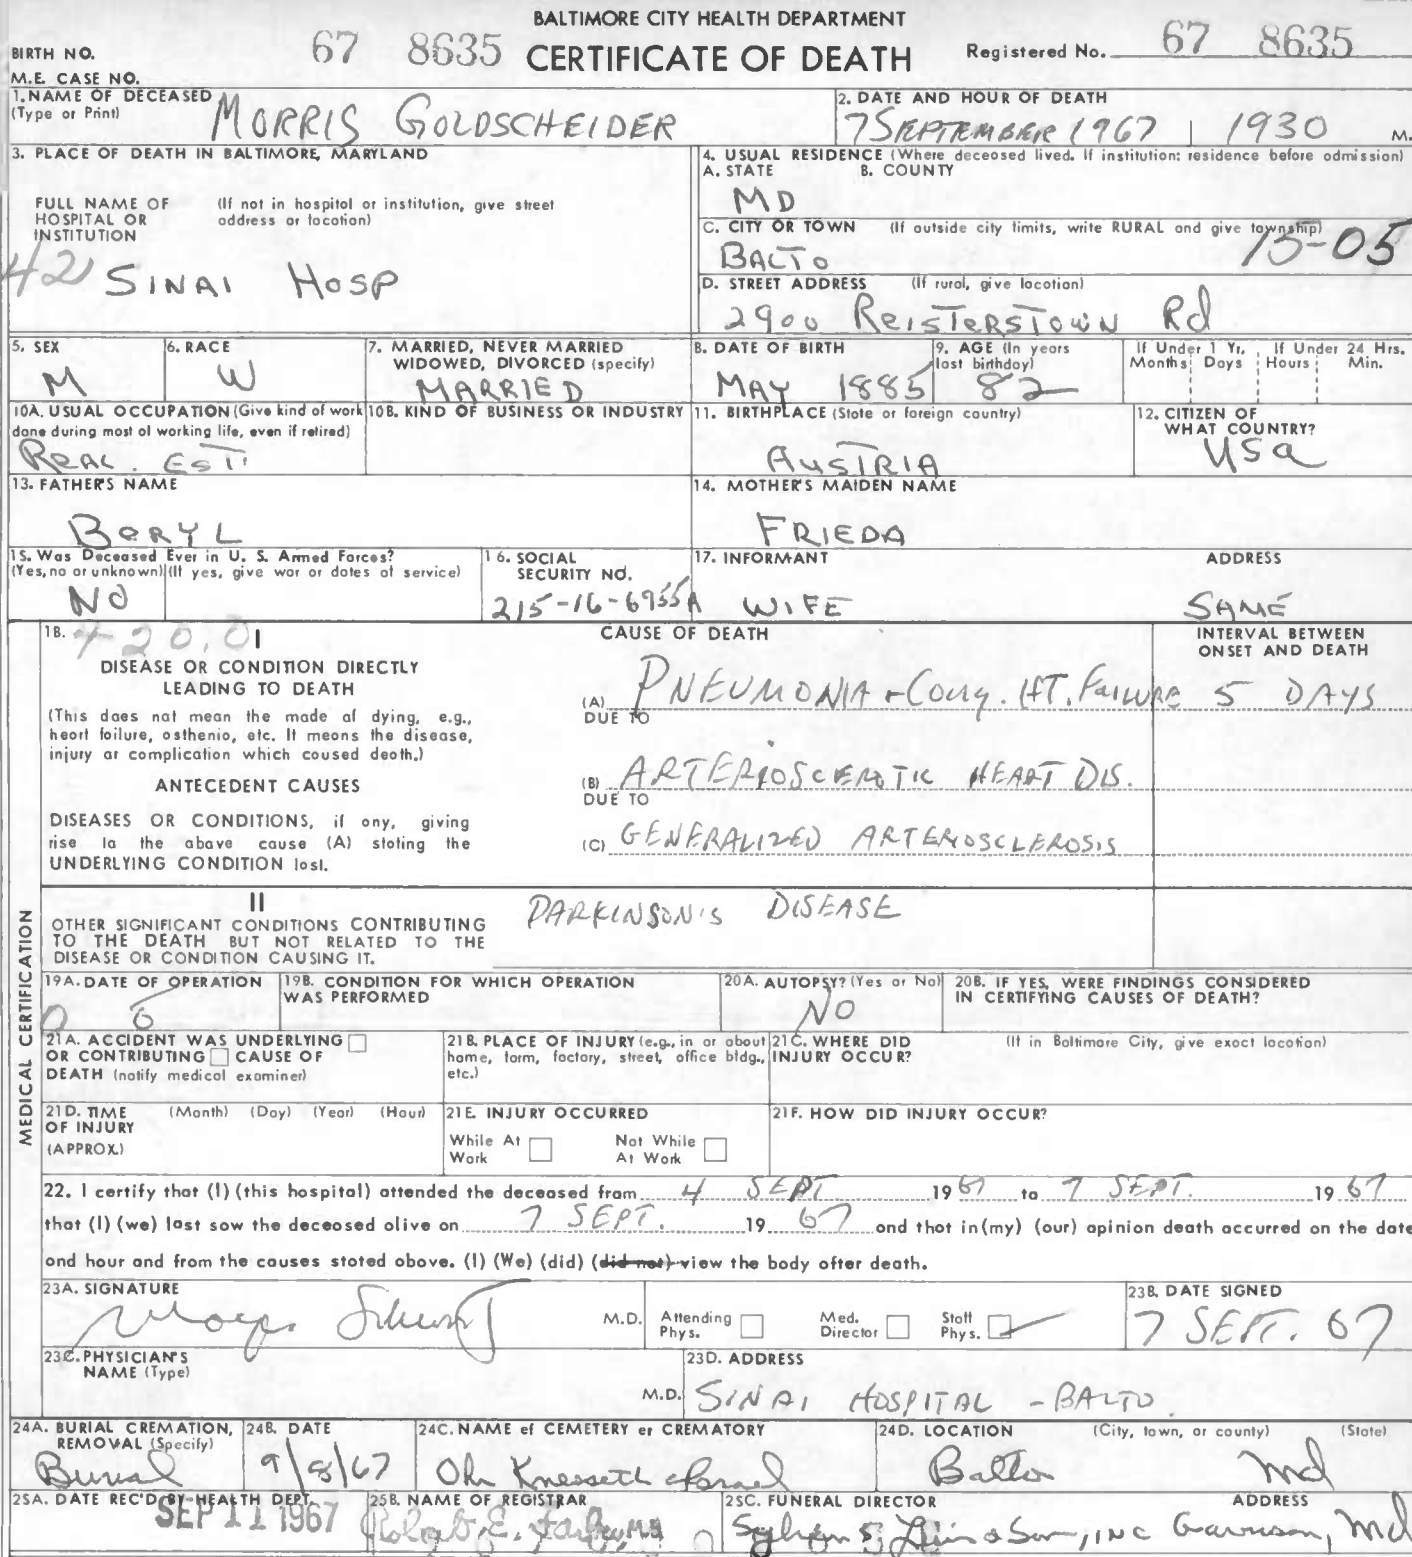 BALTIMORE CITY HEALTH DEPARTMENT
BIRTH NO. 67 8635 CERTIFICATE OF DEATH Registered No. 67 8635
M.E. CASE NO.
1. NAME OF DECEASED (Type or Print) MORRIS GOLDSCHEIDER
2. DATE AND HOUR OF DEATH 7 SEPTEMBER 1967 | 1930 M.
3. PLACE OF DEATH IN BALTIMORE, MARYLAND
FULL NAME OF HOSPITAL OR INSTITUTION (If not in hospital or institution, give street address or location)
42 SINAI HOSP
4. USUAL RESIDENCE (Where deceased lived. If institution: residence before admission)
A. STATE B. COUNTY
MD
C. CITY OR TOWN (If outside city limits, write RURAL and give township)
BALTO 15-05
D. STREET ADDRESS (If rural, give location)
2900 REISTERSTOWN Rd
5. SEX M
6. RACE W
7. MARRIED, NEVER MARRIED WIDOWED, DIVORCED (specify) MARRIED
8. DATE OF BIRTH MAY 1885
9. AGE (In years last birthday) 82
If Under 1 Yr. Months Days
If Under 24 Hrs. Hours Min.
10A. USUAL OCCUPATION (Give kind of work done during most of working life, even if retired)
REAL. EST.
10B. KIND OF BUSINESS OR INDUSTRY
11. BIRTHPLACE (State or foreign country) AUSTRIA
12. CITIZEN OF WHAT COUNTRY? USa
13. FATHER'S NAME BERYL
14. MOTHER'S MAIDEN NAME FRIEDA
15. Was Deceased Ever in U. S. Armed Forces?
(Yes, no or unknown) (If yes, give war or dates of service)
NO
16. SOCIAL SECURITY NO. 215-16-6955A
17. INFORMANT ADDRESS
WIFE SAME
MEDICAL CERTIFICATION
18. 420.0 I
CAUSE OF DEATH
INTERVAL BETWEEN ONSET AND DEATH
DISEASE OR CONDITION DIRECTLY LEADING TO DEATH
(This does not mean the mode of dying, e.g., heart failure, asthenia, etc. It means the disease, injury or complication which caused death.)
(A) PNEUMONIA + Cong. HT. FAILURE 5 DAYS
DUE TO
(B) ARTERIOSCLEROTIC HEART DIS.
DUE TO
(C) GENERALIZED ARTERIOSCLEROSIS
ANTECEDENT CAUSES
DISEASES OR CONDITIONS, if any, giving rise to the above cause (A) stating the UNDERLYING CONDITION last.
II
OTHER SIGNIFICANT CONDITIONS CONTRIBUTING TO THE DEATH BUT NOT RELATED TO THE DISEASE OR CONDITION CAUSING IT.
PARKINSON'S DISEASE
19A. DATE OF OPERATION
0 0
19B. CONDITION FOR WHICH OPERATION WAS PERFORMED
20A. AUTOPSY? (Yes or No) NO
20B. IF YES, WERE FINDINGS CONSIDERED IN CERTIFYING CAUSES OF DEATH?
21A. ACCIDENT WAS UNDERLYING OR CONTRIBUTING CAUSE OF DEATH (notify medical examiner)
21B. PLACE OF INJURY (e.g., in or about home, farm, factory, street, office bldg., etc.)
21C. WHERE DID INJURY OCCUR? (If in Baltimore City, give exact location)
21D. TIME OF INJURY (APPROX.) (Month) (Day) (Year) (Hour)
21E. INJURY OCCURRED
While At Work Not While At Work
21F. HOW DID INJURY OCCUR?
22. I certify that (I) (this hospital) attended the deceased from 4 SEPT 1967 to 7 SEPT. 1967
that (I) (we) last saw the deceased alive on 7 SEPT. 1967 and that in (my) (our) opinion death occurred on the date
and hour and from the causes stated above. (I) (We) (did) (did not) view the body after death.
23A. SIGNATURE M.D.
Attending Phys. Med. Director Staff Phys.
23B. DATE SIGNED
7 SEPT. 67
23C. PHYSICIAN'S NAME (Type) M.D.
23D. ADDRESS
SINAI HOSPITAL - BALTO.
24A. BURIAL CREMATION, REMOVAL (Specify) Burial
24B. DATE 9/8/67
24C. NAME of CEMETERY or CREMATORY Ohr Knesseth Israel
24D. LOCATION (City, town, or county) (State)
Balto Md
25A. DATE REC'D BY HEALTH DEPT. SEP 11 1967
25B. NAME OF REGISTRAR Robert E. Farber, M.D.
25C. FUNERAL DIRECTOR ADDRESS
& Son, INC Garrison, Md